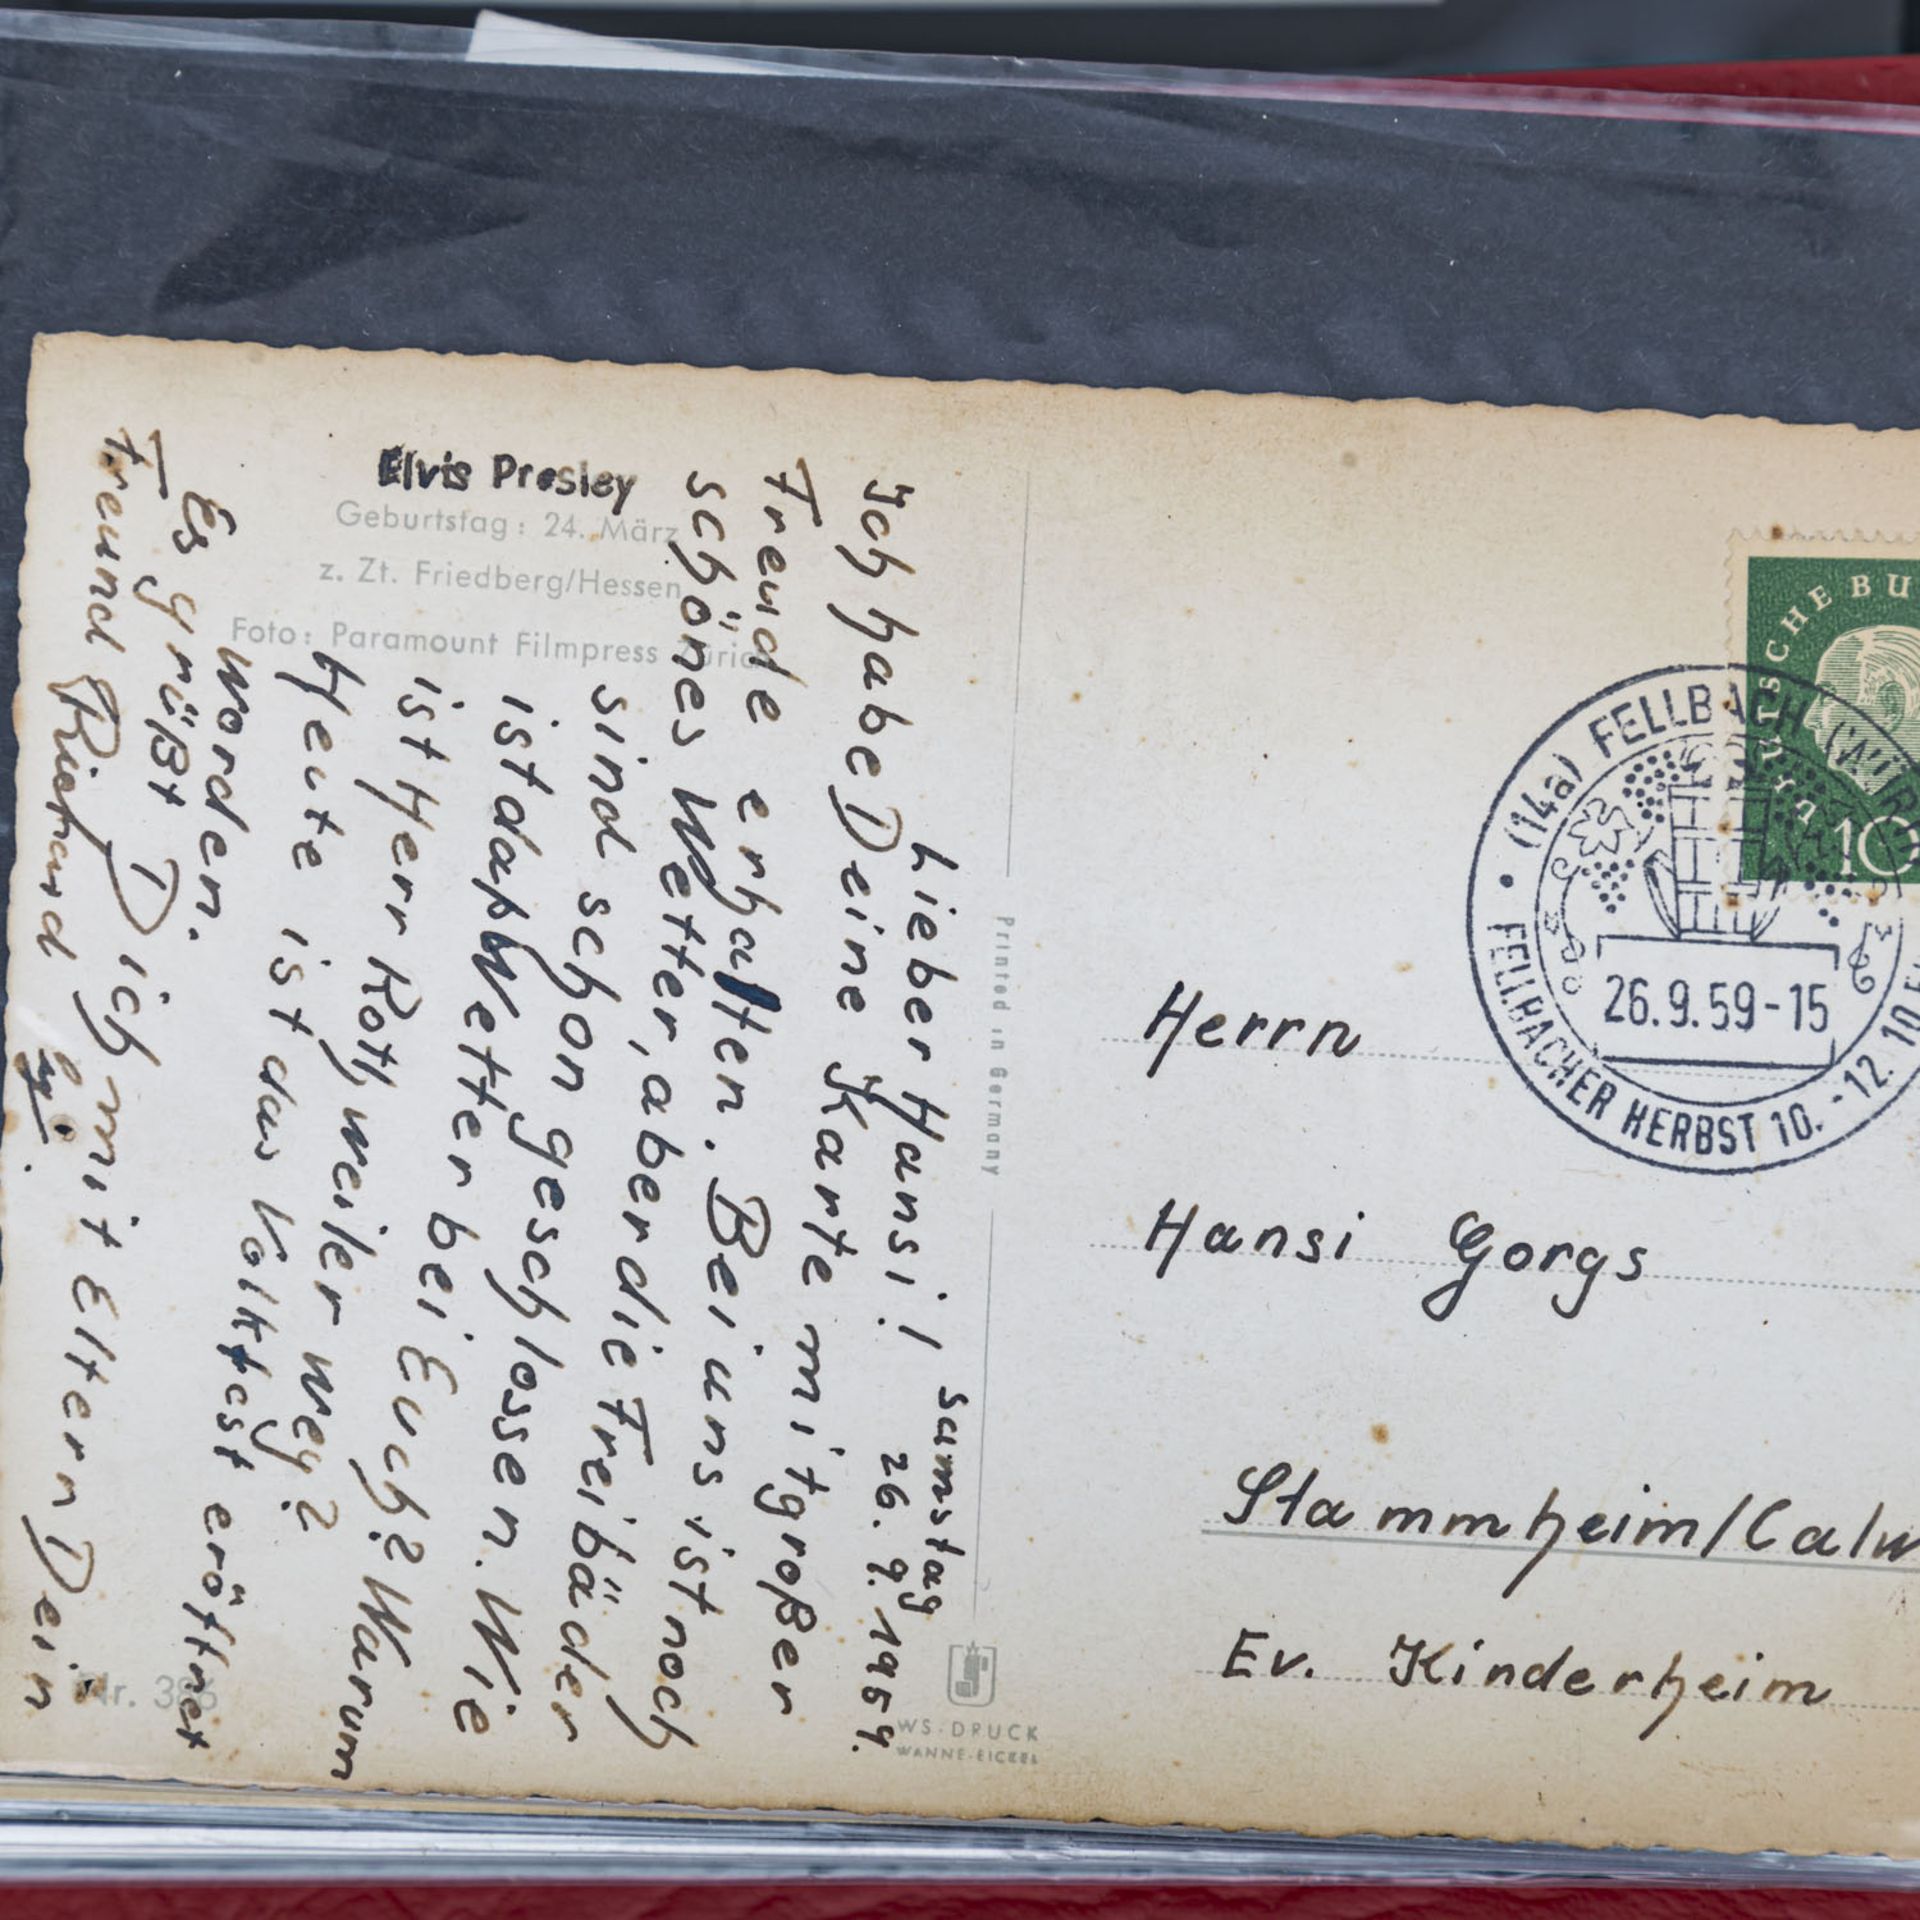 Elvis Presley
Geburtstag: 24. März
z. Zt. Friedberg/Hessen
Foto: Paramount Filmpress Zürich
Samstag
26. 9. 1959.
Lieber Hansi!
Ich habe Deine Karte mit großer
Freude erhalten. Bei uns ist noch
schönes Wetter, aber die Freibäder
sind schon geschlossen. Wie
ist das Wetter bei Euch? Warum
ist Herr Rothweiler weg?
Heute ist das Volkfest eröffnet
worden.
Es grüßt Dich mit Eltern Dein
Freund Richard
Nr. 386
Printed in Germany
WS-DRUCK
WANNE-EICKEL
DEUTSCHE BU
10
(14a) FELLBACH (WÜRTT
26.9.59-15
FELLBACHER HERBST 10.-12. 10
Herrn
Hansi Gorgs
Stammheim/Calw
Ev. Kinderheim